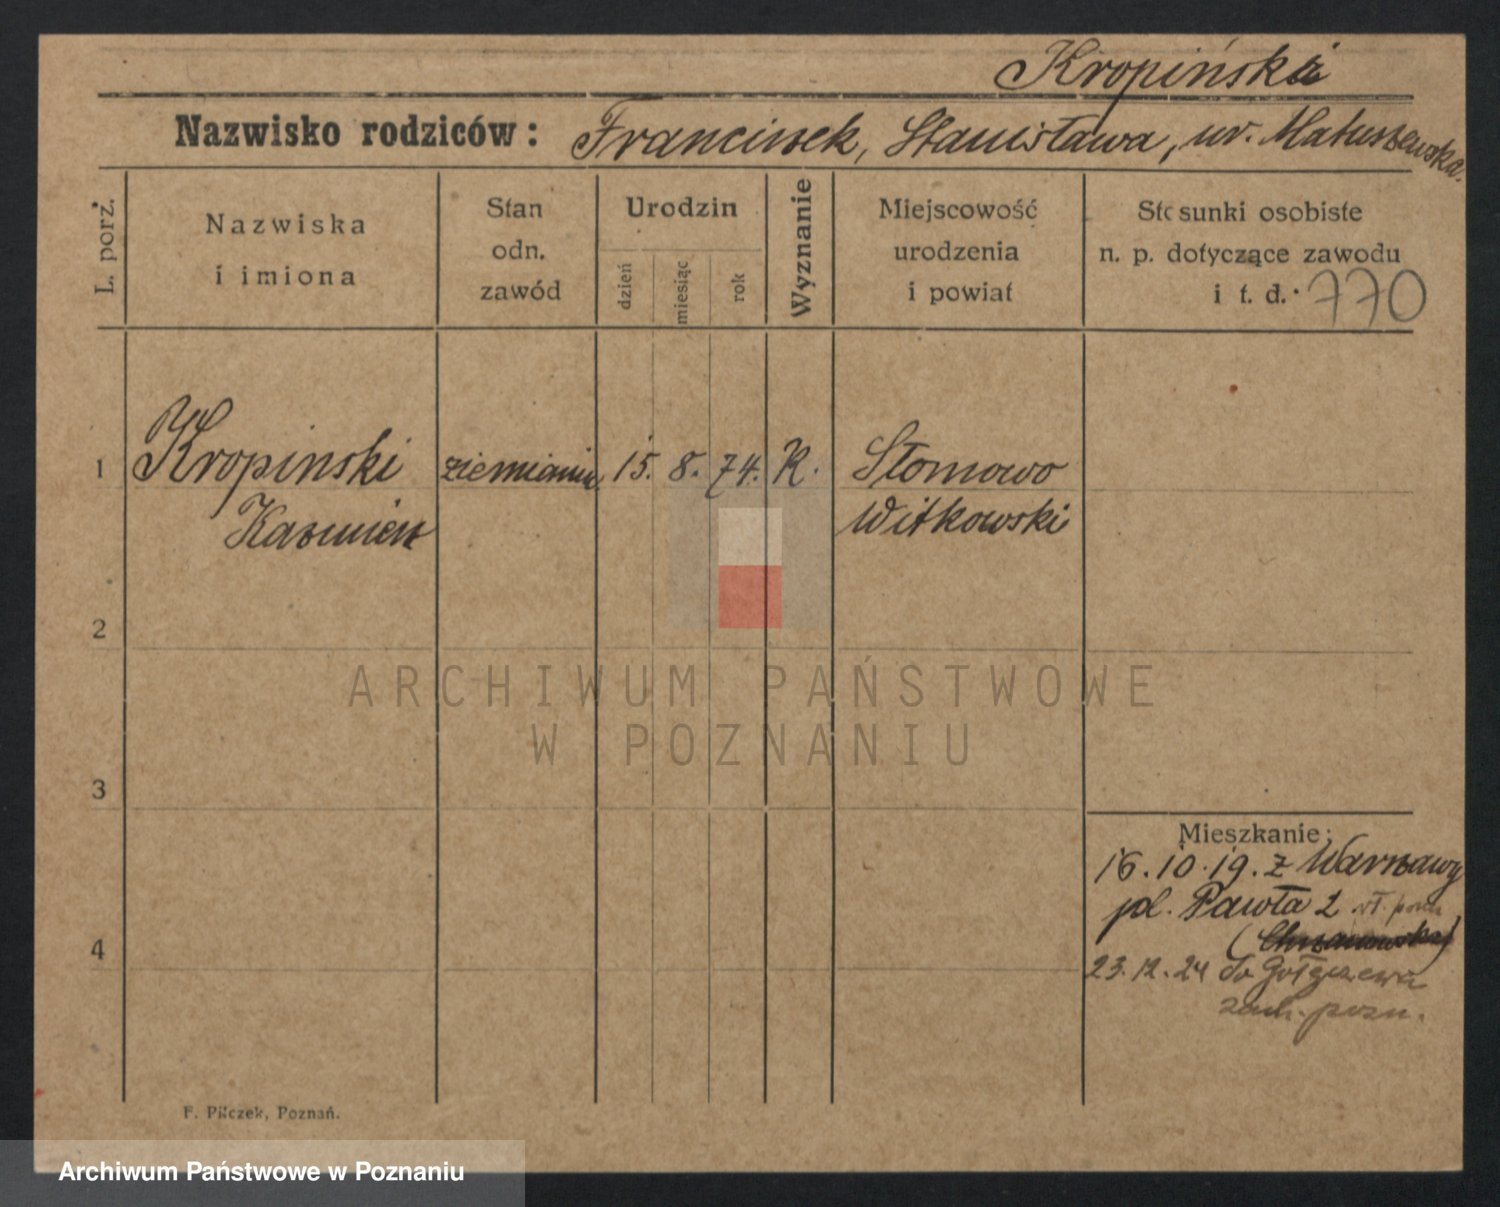 Kropiński
Nazwisko rodziców: Franciszek, Stanisława, ur. Matuszewska.
L. porz.
Nazwiska
i imiona
Stan
odn.
zawód
Urodzin
dzień
miesiąc
rok
Wyznanie
Miejscowość
urodzenia
i powiat
Stosunki osobiste
n. p. dotyczące zawodu
i t. d. 770
1 Kropinski ziemianin 15. 8. 74. K. Słomowo
Kazmierz Witkowski
2
ARCHIWUM PAŃSTWOWE
W POZNANIU
3
Mieszkanie:
16.10.19. z Warszawy
pl. Pawła 2 wł.
(Chrzanowska)
4
23.12.24 do
pozn.
F. Pilczek, Poznań.
Archiwum Państwowe w Poznaniu